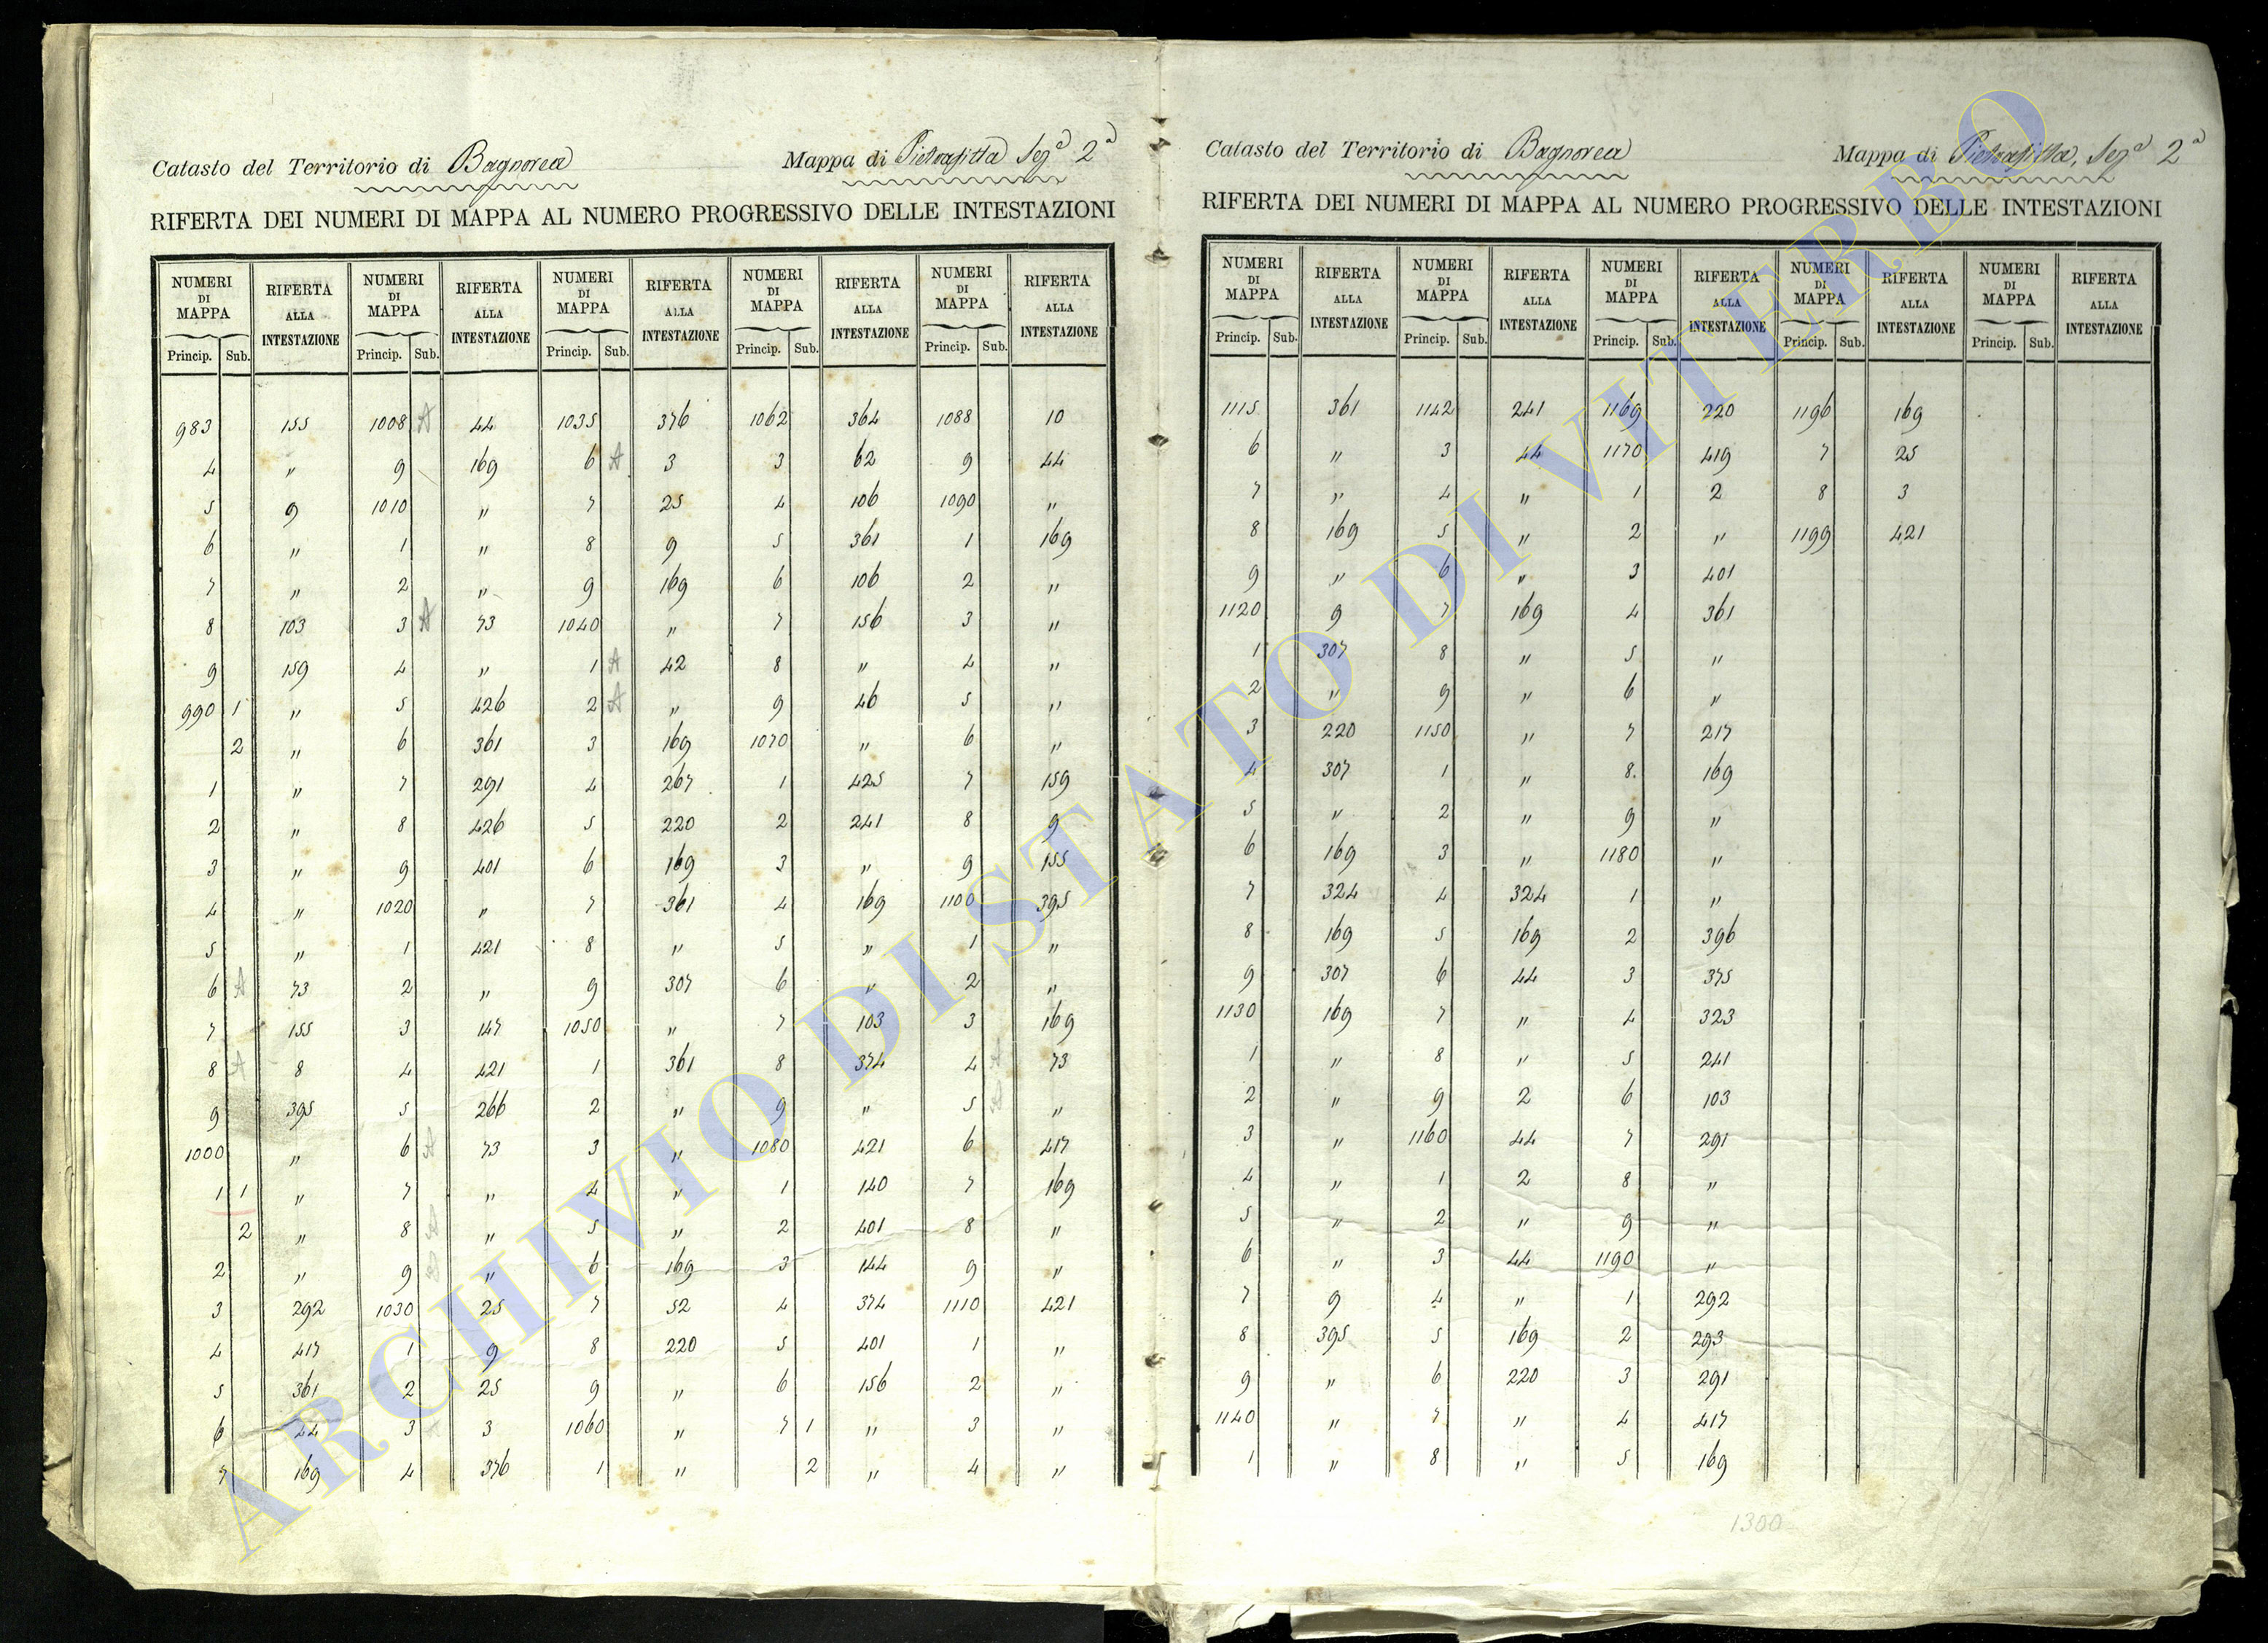 Catasto del Territorio di Bagnorea Mappa di Pietrafitta Sez.ª 2ª
RIFERTA DEI NUMERI DI MAPPA AL NUMERO PROGRESSIVO DELLE INTESTAZIONI
NUMERI DI MAPPA RIFERTA ALLA INTESTAZIONE NUMERI DI MAPPA RIFERTA ALLA INTESTAZIONE NUMERI DI MAPPA RIFERTA ALLA INTESTAZIONE NUMERI DI MAPPA RIFERTA ALLA INTESTAZIONE NUMERI DI MAPPA RIFERTA ALLA INTESTAZIONE
Princip. Sub. Princip. Sub. Princip. Sub. Princip. Sub. Princip. Sub.
983 155 1008 A 44 1035 376 1062 364 1088 10
4 " 9 169 6 A 3 3 62 9 44
5 9 1010 " 7 25 4 106 1090 "
6 " 1 " 8 9 5 361 1 169
7 " 2 " 9 169 6 106 2 "
8 103 3 A 73 1040 " 7 156 3 "
9 159 4 " 1 A 42 8 " 4 "
990 1 " 5 426 2 A " 9 46 5 "
2 " 6 361 3 169 1070 " 6 "
1 " 7 291 4 267 1 425 7 159
2 " 8 426 5 220 2 241 8 9
3 " 9 401 6 169 3 " 9 155
4 " 1020 " 7 361 4 169 1100 395
5 " 1 421 8 " 5 " 1 "
6 A 73 2 " 9 307 6 " 2 "
7 155 3 147 1050 " 7 103 3 169
8 A 8 4 421 1 361 8 374 4 A 73
9 395 5 266 2 " 9 " 5 "
1000 " 6 A 73 3 " 1080 421 6 417
1 1 " 7 " 4 " 1 140 7 169
2 " 8 A " 5 " 2 401 8 "
2 " 9 B " 6 169 3 144 9 "
3 292 1030 25 7 52 4 374 1110 421
4 417 1 9 8 220 5 401 1 "
5 361 2 25 9 " 6 156 2 "
6 44 3 3 1060 " 7 1 " 3 "
7 169 4 376 1 " 2 " 4 "
Catasto del Territorio di Bagnorea Mappa di Pietrafitta, Sez.ª 2ª
RIFERTA DEI NUMERI DI MAPPA AL NUMERO PROGRESSIVO DELLE INTESTAZIONI
NUMERI DI MAPPA RIFERTA ALLA INTESTAZIONE NUMERI DI MAPPA RIFERTA ALLA INTESTAZIONE NUMERI DI MAPPA RIFERTA ALLA INTESTAZIONE NUMERI DI MAPPA RIFERTA ALLA INTESTAZIONE NUMERI DI MAPPA RIFERTA ALLA INTESTAZIONE
Princip. Sub. Princip. Sub. Princip. Sub. Princip. Sub. Princip. Sub.
1115 361 1142 241 1169 220 1196 169
6 " 3 44 1170 419 7 25
7 " 4 " 1 2 8 3
8 169 5 " 2 " 1199 421
9 " 6 " 3 401
1120 9 7 169 4 361
1 307 8 " 5 "
2 " 9 " 6 "
3 220 1150 " 7 217
4 307 1 " 8. 169
5 " 2 " 9 "
6 169 3 " 1180 "
7 324 4 324 1 "
8 169 5 169 2 396
9 307 6 44 3 375
1130 169 7 " 4 323
1 " 8 " 5 241
2 " 9 2 6 103
3 " 1160 44 7 291
4 " 1 2 8 "
5 " 2 " 9 "
6 " 3 44 1190 "
7 9 4 " 1 292
8 395 5 169 2 293
9 " 6 220 3 291
1140 " 7 " 4 417
1 " 8 " 5 169
1300
ARCHIVIO DI STATO DI VITERBO